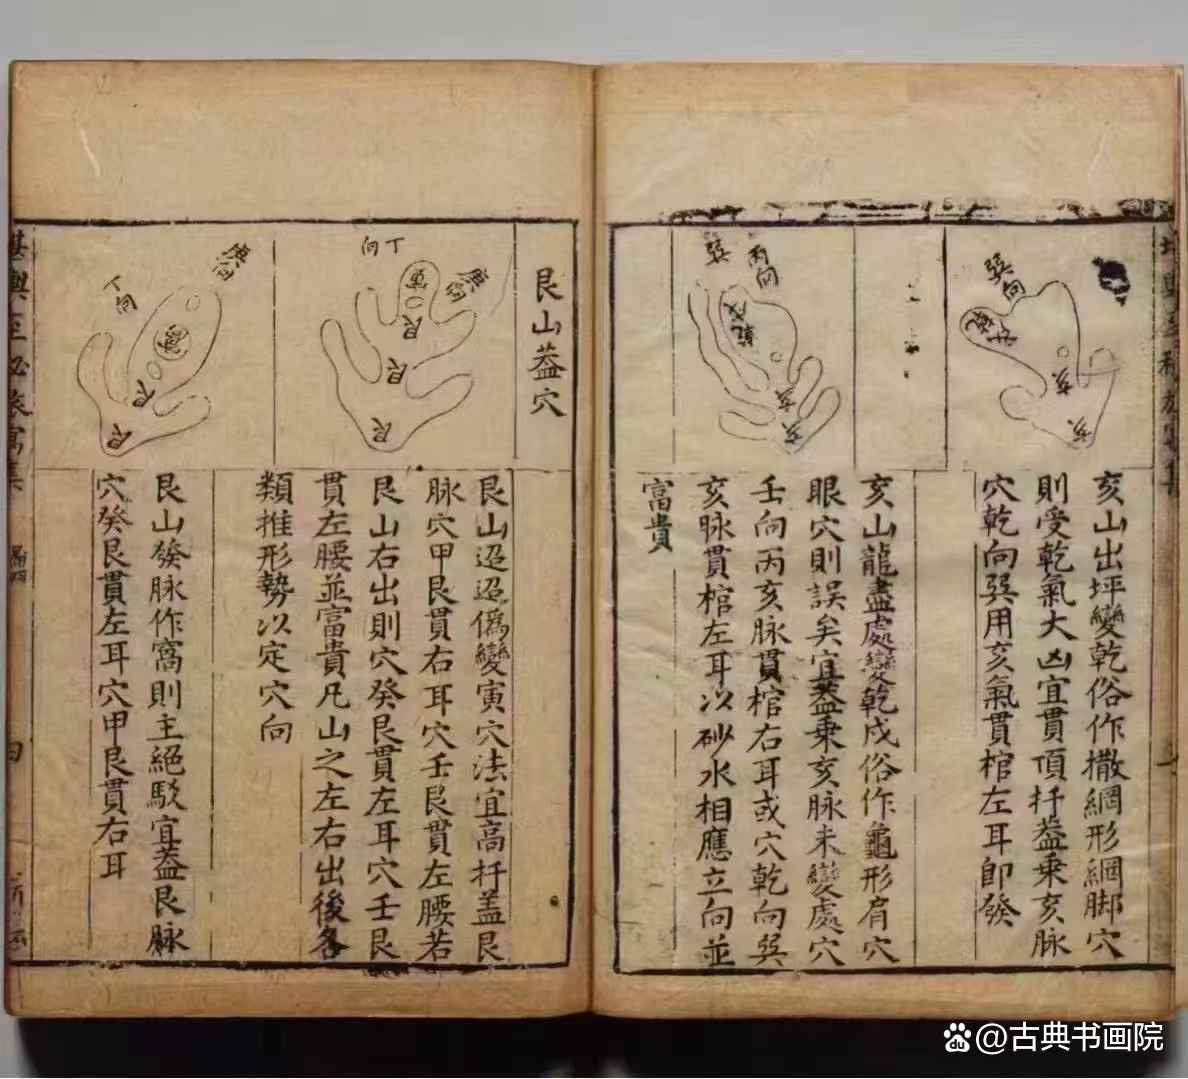 巽向
亥
亥
亥山出坪變乾俗作撒網形網脚穴
則受乾氣大凶宜貫頂扦葢乗亥脉
穴乾向巽用亥氣貫棺左耳即發
巽
丙向
亥
亥
亥山龍盡處變乾戌俗作龜形肩穴
眼穴則誤矣宜葢乗亥脉未變處穴
壬向丙亥脉貫棺右耳或穴乾向巽
亥脉貫棺左耳以砂水相應立向並
富貴
艮山葢穴
丁向
庚向
艮
艮
艮
艮山迢迢僞變寅穴法宜高扦盖艮
脉穴甲艮貫右耳穴壬艮貫左腰若
艮山右出則穴癸艮貫左耳穴壬艮
貫左腰並富貴凡山之左右出後各
類推形勢以定穴向
庚向
丁向
窩
艮
艮
艮山發脉作窩則主絕駁宜葢艮脉
穴癸艮貫左耳穴甲艮貫右耳
堪輿至秘旅寓集
四
@古典书画院